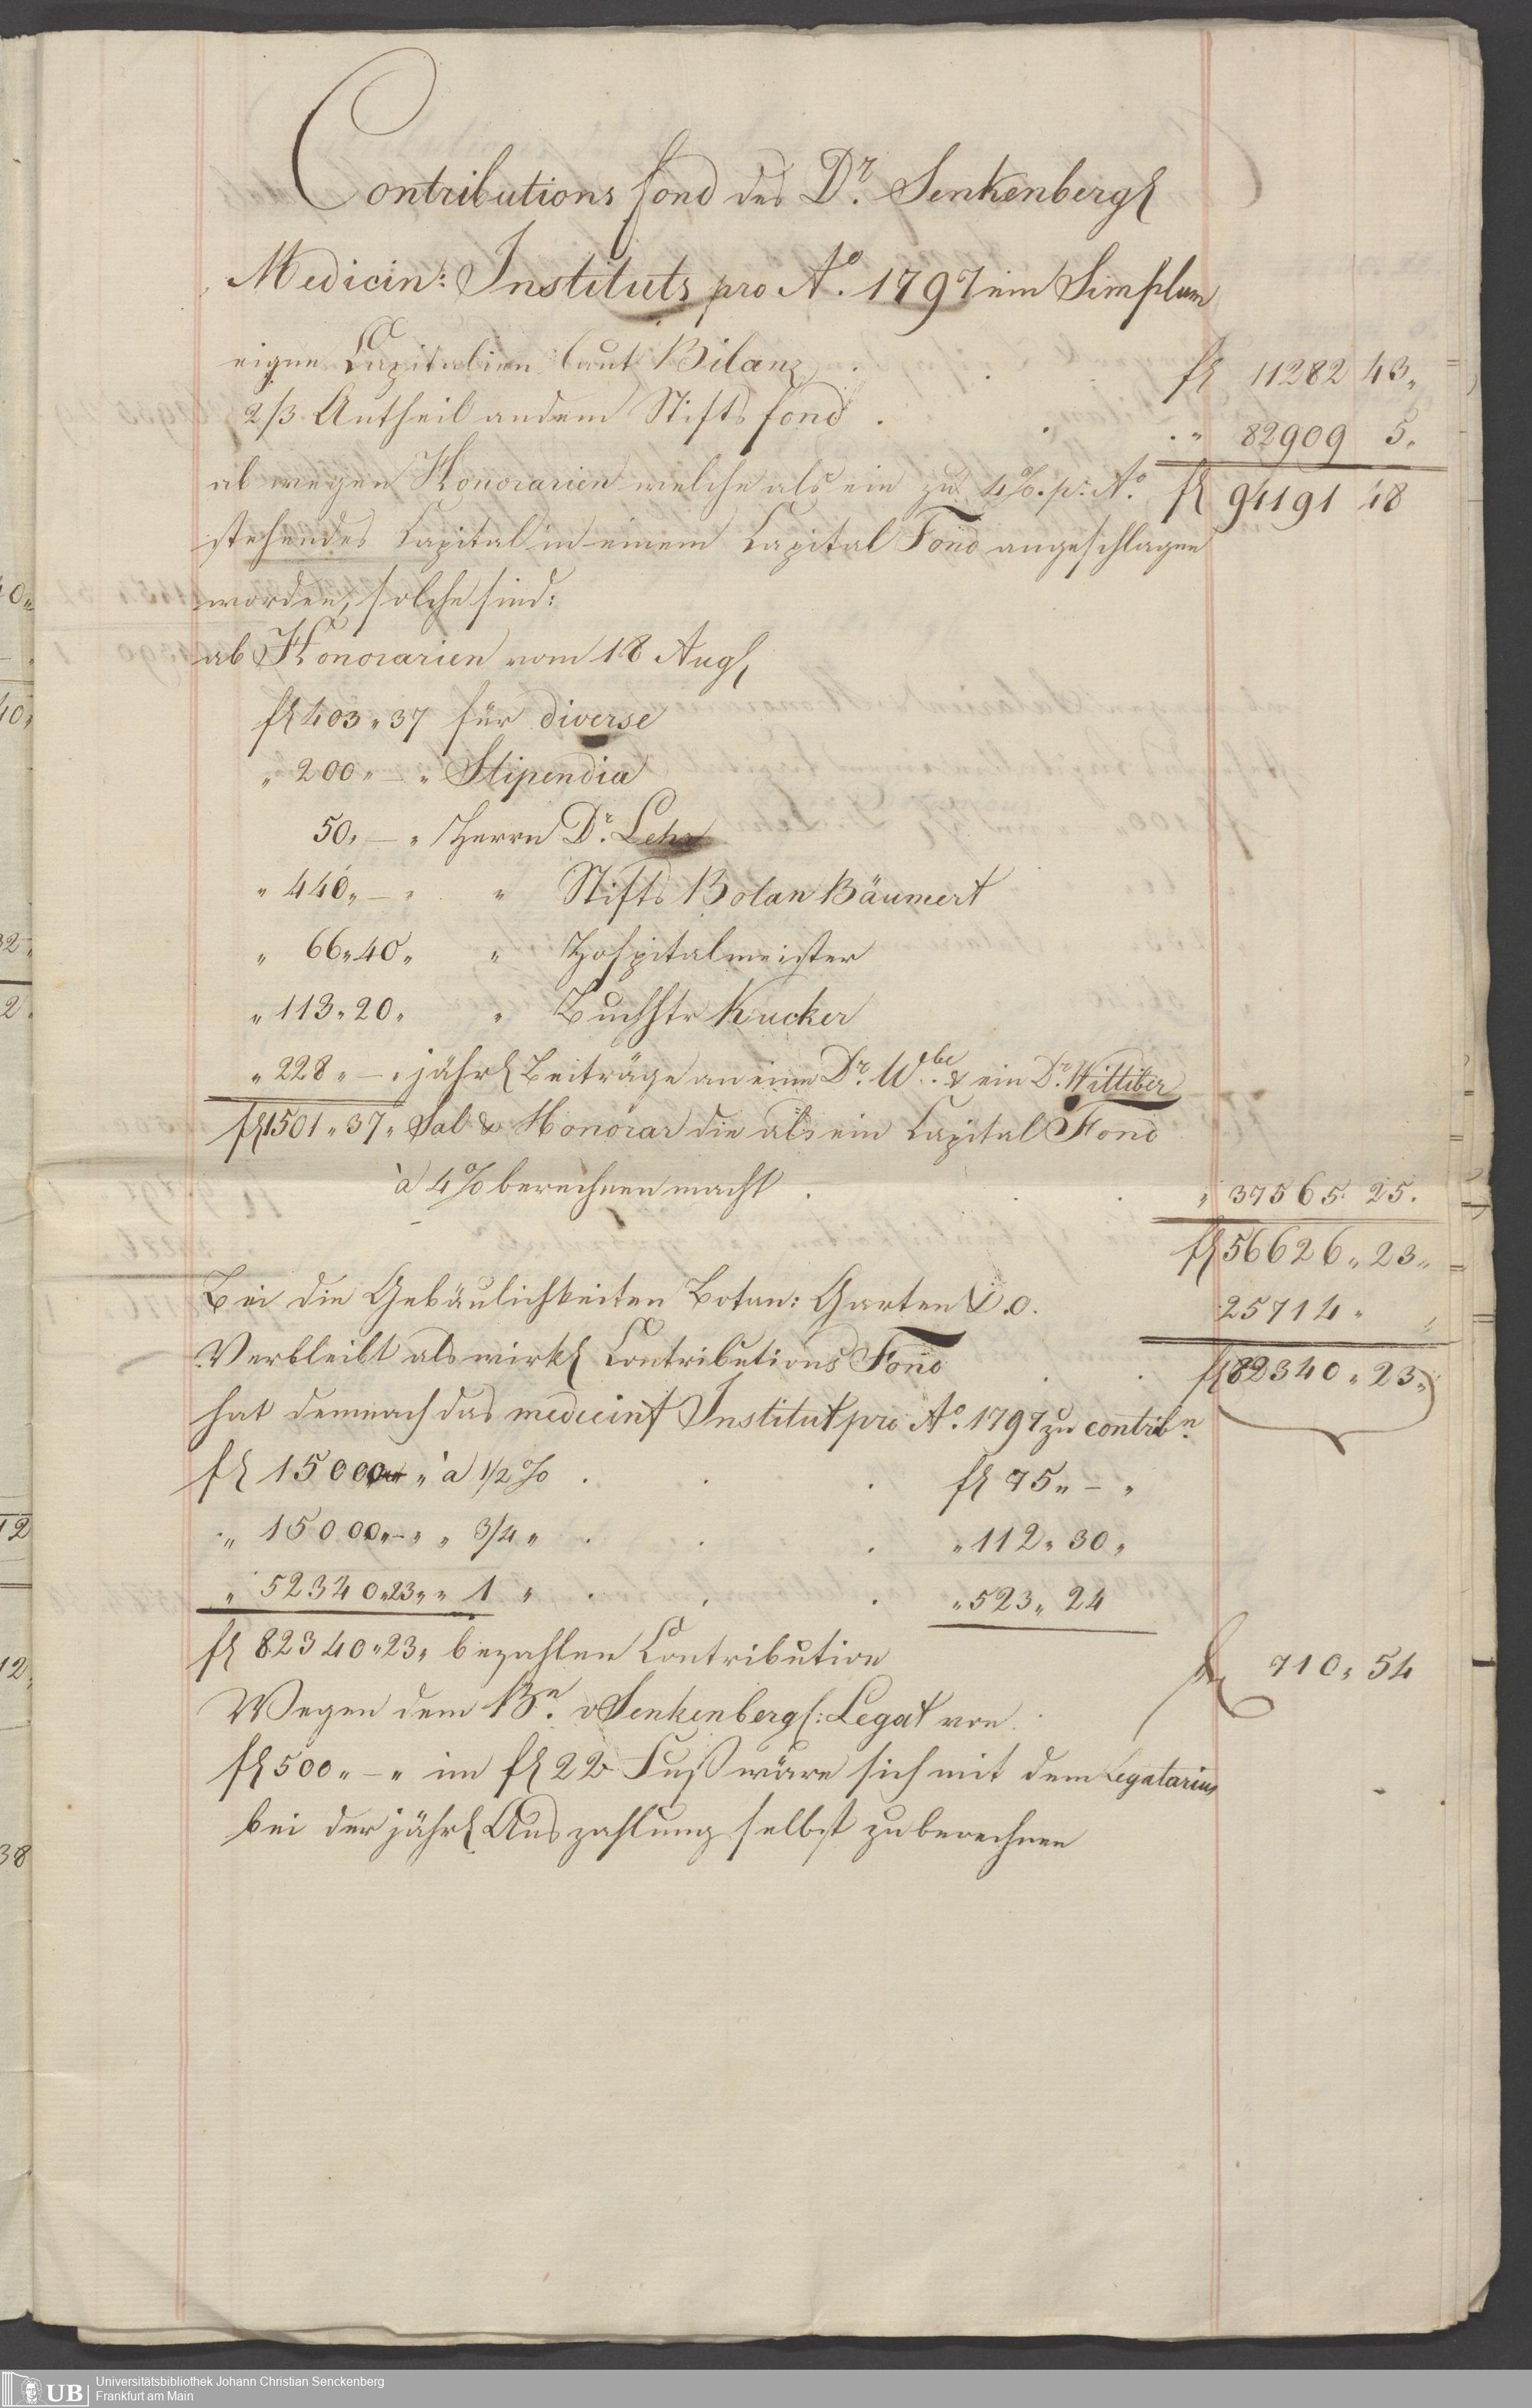 Contributions fond des Dr. Senkenbergl
Medicin: Instituts pro Ao. 1797 ein Simplum
eigene Capitalien laut Bilanz . . . fl 11282 43„
2/3 Antheil an dem Stifts fond . . . „ 82909 5„
ab wegen Honorarien welche als ein zu 4%. p. Ao. fl 94191 48
stehendes Capital in einem Capital Fond angeschlagen
worden, solche sind:
ab Honorarien vom 18 Augl
fl 403„37 für diverse
„ 200„ — „ Stipendia
50„ — „ Herrn Dr. Lehr
„ 440„ — „ „ Stifts Botan Bäumert
„ 66„40„ „ Hospitalmeister
„ 113„20„ „ Buchhtr Kucker
„ 228„ — „ jährl Beiträge an eine Dr. Wbe. & ein Dr. Wittiber
fl 1501„37„ Sal & Honorar die als ein Capital Fond
à 4% berechnen macht . . . „ 37565 25.
fl 56626„23„
Bei die Gebäulichkeiten Botan: Garten & . 25714„ „
Verbleibt als wirkl Contributions Fond . . fl 82340„23„
hat demnach das medicinl Institut pro Ao. 1797 zu contribn.
fl 15000 „ à 1/2% . . . fl 75„ — „
„ 15000„ — „ „ 3/4 „ . . . „ 112„30„
„ 52340„23„ „ 1 „ . . . „ 523„24
fl 82340„23„ bezahlen Contribution fl 710„54
Wegen dem Bn. v Senkenbergl: Legat von
fl 500„ — „ im fl 22 Fuß wäre sich mit dem Legatarius
bei der jährl Auszahlung selbst zu berechnen
40„
40„
32„
2„
12
12„
38
UB
Universitätsbibliothek Johann Christian Senckenberg
Frankfurt am Main